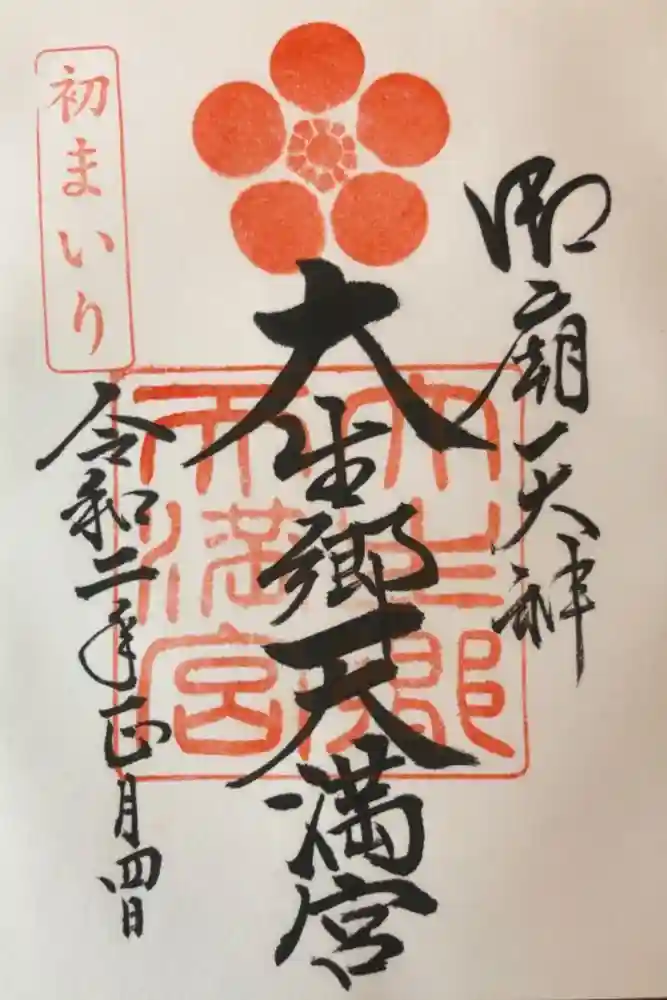 御廟天神
大生郷天満宮
大生郷
天満宮
初まいり
令和二年正月四日